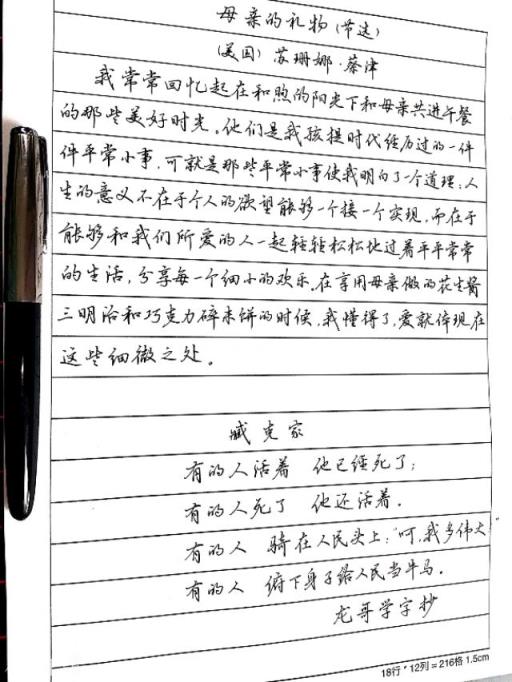 母亲的礼物(节选)
(美国) 苏珊娜·蔡津
我常常回忆起在和煦的阳光下和母亲共进午餐
的那些美好时光。他们是我孩提时代经历过的一件
件平常小事,可就是那些平常小事使我明白了一个道理:人
生的意义不在于个人的欲望能够一个接一个实现,而在于
能够和我们所爱的人一起轻轻松松地过着平平常常
的生活,分享每一个细小的欢乐。在享用母亲做的花生酱
三明治和巧克力碎末饼的时候,我懂得了,爱就体现在
这些细微之处。
臧克家
有的人活着 他已经死了;
有的人死了 他还活着。
有的人 骑在人民头上:"呵,我多伟大"
有的人 俯下身子给人民当牛马。
龙哥学字抄
18行*12列=216格 1.5cm